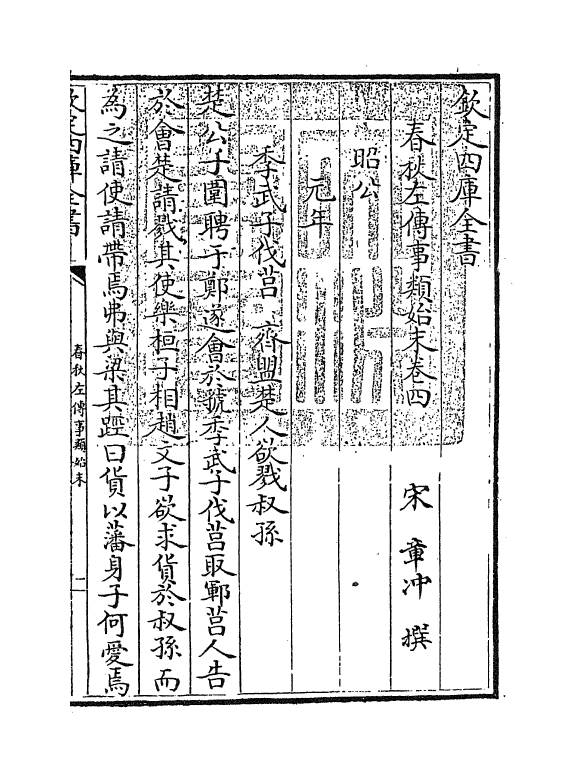 欽定四庫全書
春秋左傳事類始末卷四
宋 章冲 撰
昭公
元年
季武子伐莒 齊盟楚人欲戮叔孫
楚公子圍聘于鄭遂會於虢季武子伐莒取鄆莒人告
於會楚請戮其使樂桓子相趙文子欲求貨於叔孫而
為之請使請帶焉弗與梁其踁曰貨以藩身子何愛焉
欽定四庫全書
春秋左傳事類始末